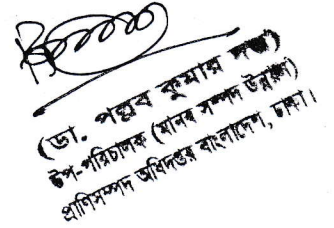 (ডা. পল্লব কুমার দত্ত)
উপ-পরিচালক (মানব সম্পদ উন্নয়ন)
প্রাণিসম্পদ অধিদপ্তর বাংলাদেশ, ঢাকা।